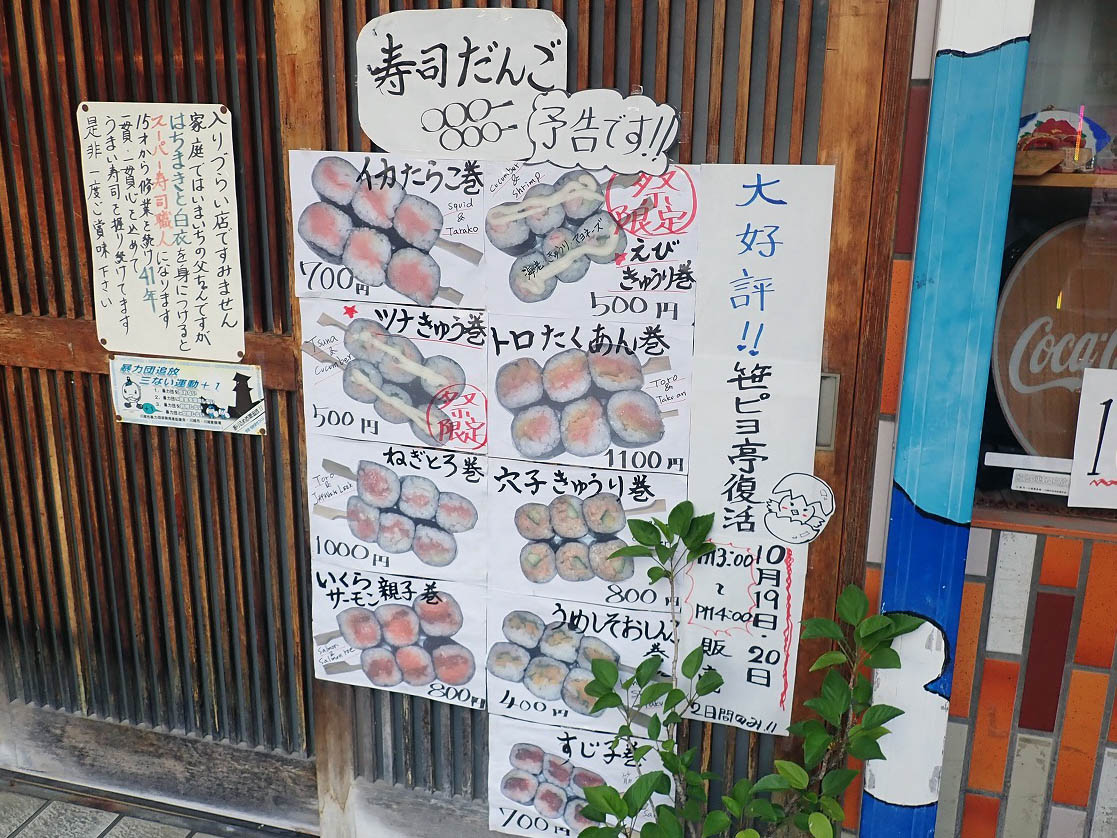 寿司だんご
予告です!!
入りづらい店ですみません
家庭ではいまいちの父ちんですが
はちまきと白衣を身につけると
スーパー寿司職人になります
15才から修業を続け41年
一貫・一貫心を込めて
うまい寿司を握り続けてます
是非一度ご賞味下さい
暴力団追放
三ない運動+1
イカたらこ巻
squid
&
Tarako
700円
Cucumber
&
shrimp
夕刻限定
海老、きゅうり、マヨネーズ
えび
きゅうり巻
500円
ツナきゅう巻
Tuna
&
Cucumber
500円
限定
トロたくあん巻
Toro
&
Takuan
1100円
ねぎとろ巻
Toro
&
1000円
穴子きゅうり巻
800円
いくら
サーモン親子巻
Salmon
&
Salmon roe
800円
うめしそおしんこ
巻
400円
すじ子巻
700円
大好評!!笹ピヨ亭復活
10月19日・20日
PM3:00
~
PM4:00
販売
2日間のみ!!
Coca
1